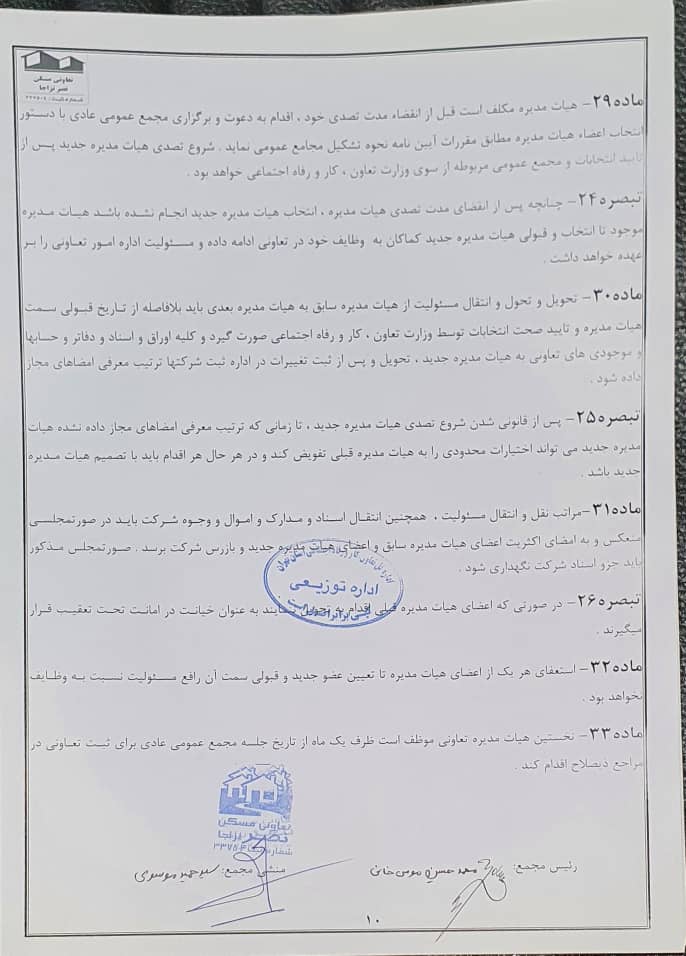 تعاونی مسکن
نصر نزاجا
ماده۲۹– هیات مدیره مکلف است قبل از انقضاء مدت تصدی خود ، اقدام به دعوت و برگزاری مجمع عمومی عادی با دستور
انتخاب اعضاء هیات مدیره مطابق مقررات آیین نامه نحوه تشکیل مجامع عمومی نماید . شروع تصدی هیات مدیره جدید پس از
تایید انتخابات و مجمع عمومی مربوطه از سوی وزارت تعاون ، کار و رفاه اجتماعی خواهد بود .
تبصره۲۴– چنانچه پس از انقضای مدت تصدی هیات مدیره ، انتخاب هیات مدیره جدید انجام نشده باشد هیات مدیره
موجود تا انتخاب و قبولی هیات مدیره جدید کماکان به وظایف خود در تعاونی ادامه داده و مسئولیت اداره امور تعاونی را بر
عهده خواهد داشت .
ماده۳۰– تحویل و تحول و انتقال مسئولیت از هیات مدیره سابق به هیات مدیره بعدی باید بلافاصله از تاریخ قبولی سمت
هیات مدیره و تایید صحت انتخابات توسط وزارت تعاون ، کار و رفاه اجتماعی صورت گیرد و کلیه اوراق و اسناد و دفاتر و حسابها
و موجودی های تعاونی به هیات مدیره جدید ، تحویل و پس از ثبت تغییرات در اداره ثبت شرکتها ترتیب معرفی امضاهای مجاز
داده شود .
تبصره۲۵– پس از قانونی شدن شروع تصدی هیات مدیره جدید ، تا زمانی که ترتیب معرفی امضاهای مجاز داده نشده هیات
مدیره جدید می تواند اختیارات محدودی را به هیات مدیره قبلی تفویض کند و در هر حال هر اقدام باید با تصمیم هیات مدیره
جدید باشد .
ماده۳۱–مراتب نقل و انتقال مسئولیت ، همچنین انتقال اسناد و مدارک و اموال و وجوه شرکت باید در صورتمجلسی
منعکس و به امضای اکثریت اعضای هیات مدیره سابق و اعضای هیات مدیره جدید و بازرس شرکت برسد . صورتمجلس مذکور
باید جزو اسناد شرکت نگهداری شود .
اداره توزیعی
تبصره۲۶– در صورتی که اعضای هیات مدیره قبلی اقدام به تحویل ننمایند به عنوان خیانت در امانت تحت تعقیب قرار
میگیرند .
ماده۳۲– استعفای هر یک از اعضای هیات مدیره تا تعیین عضو جدید و قبولی سمت آن رافع مسئولیت نسبت به وظایف
نخواهد بود .
ماده۳۳– نخستین هیات مدیره تعاونی موظف است ظرف یک ماه از تاریخ جلسه مجمع عمومی عادی برای ثبت تعاونی در
مراجع ذیصلاح اقدام کند .
تعاونی مسکن
نصر نزاجا
رئیس مجمع:
منشی مجمع: سید حمید موسوی
۱۰